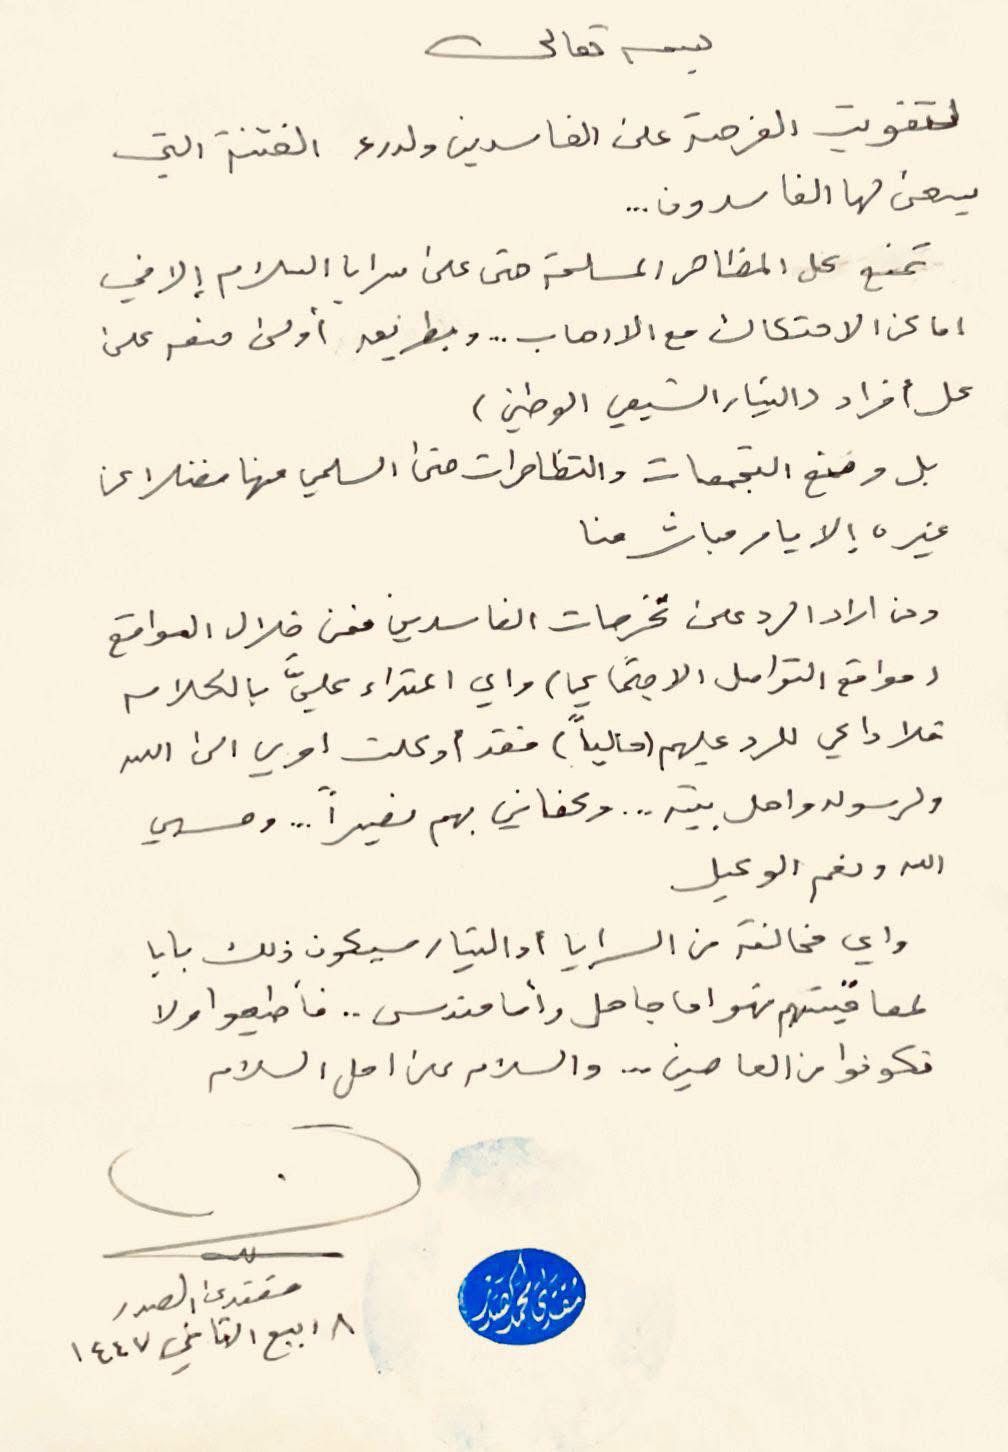 بسمه تعالى
لتفويت الفرصة على الفاسدين ولدرء الفتنة التي
يسعى لها الفاسدون...
تمنع كل المظاهر المسلحة حتى على سرايا السلام إلا في
اماكن الاحتكاك مع الارهاب... وبطريق أولى منعه على
كل أفراد (التيار الشيعي الوطني)
بل ومنع التجمعات والتظاهرات حتى السلمي منها فضلا عن
غيره إلا بامر مباشر منا
ومن اراد الرد على تخرصات الفاسدين فمن خلال المواقع
(مواقع التواصل الاجتماعي) واي اعتداء عليَّ بالكلام
فلا داعي للرد عليهم (حالياً) فقد أوكلت امري الى الله
ولرسوله واهل بيته... وكفاني بهم نصيراً... وحسبي
الله ونعم الوكيل
واي مخالفة من السرايا أو التيار سيكون ذلك بابا
لمعاقبتهم فهو اما جاهل وأما مندس.. فأطيعوا ولا
تكونوا من العاصين... والسلام على اهل السلام
مقتدى الصدر
٨ ربيع الثاني ١٤٤٧
مقتدى محمد الصدر